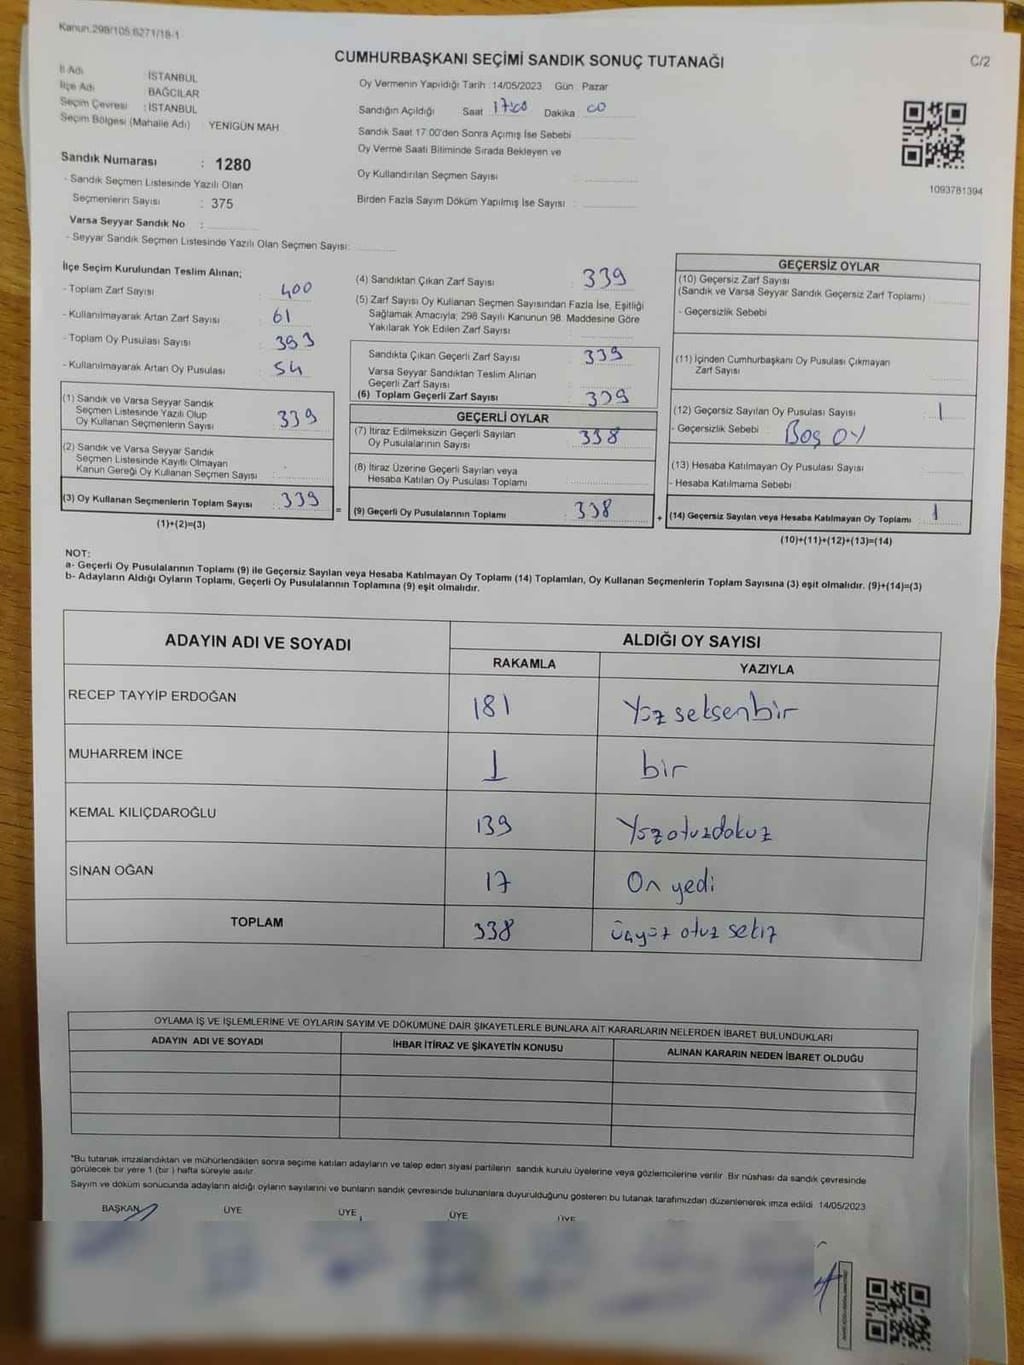 Kanun.298/105.6271/18-1
CUMHURBAŞKANI SEÇİMİ SANDIK SONUÇ TUTANAĞI
C/2
İl Adı İSTANBUL
İlçe Adı BAĞCILAR
Seçim Çevresi : İSTANBUL
Seçim Bölgesi (Mahalle Adı) YENİGÜN MAH
Sandık Numarası : 1280
- Sandık Seçmen Listesinde Yazılı Olan
Seçmenlerin Sayısı : 375
Varsa Seyyar Sandık No :
- Seyyar Sandık Seçmen Listesinde Yazılı Olan Seçmen Sayısı:
Oy Vermenin Yapıldığı Tarih : 14/05/2023 Gün Pazar
Sandığın Açıldığı Saat 17:00 Dakika 00
Sandık Saat 17:00'den Sonra Açımış İse Sebebi
Oy Verme Saati Bitiminde Sırada Bekleyen ve
Oy Kullandırılan Seçmen Sayısı :
Birden Fazla Sayım Döküm Yapılmış İse Sayısı :
1093781394
İlçe Seçim Kurulundan Teslim Alınan;
- Toplam Zarf Sayısı : 400
- Kullanılmayarak Artan Zarf Sayısı : 61
- Toplam Oy Pusulası Sayısı : 393
- Kullanılmayarak Artan Oy Pusulası : 54
(1) Sandık ve Varsa Seyyar Sandık
Seçmen Listesinde Yazılı Olup
Oy Kullanan Seçmenlerin Sayısı : 339
(2) Sandık ve Varsa Seyyar Sandık
Seçmen Listesinde Kayıtlı Olmayan
Kanun Gereği Oy Kullanan Seçmen Sayısı :
(3) Oy Kullanan Seçmenlerin Toplam Sayısı : 339
(1)+(2)=(3)
=
(4) Sandıktan Çıkan Zarf Sayısı : 339
(5) Zarf Sayısı Oy Kullanan Seçmen Sayısından Fazla İse, Eşitliği
Sağlamak Amacıyla; 298 Sayılı Kanunun 98. Maddesine Göre
Yakılarak Yok Edilen Zarf Sayısı :
Sandıkta Çıkan Geçerli Zarf Sayısı : 339
Varsa Seyyar Sandıktan Teslim Alınan
Geçerli Zarf Sayısı :
(6) Toplam Geçerli Zarf Sayısı : 339
GEÇERLİ OYLAR
(7) İtiraz Edilmeksizin Geçerli Sayılan
Oy Pusulalarının Sayısı : 338
(8) İtiraz Üzerine Geçerli Sayılan veya
Hesaba Katılan Oy Pusulası Toplamı :
(9) Geçerli Oy Pusulalarının Toplamı : 338
+
GEÇERSİZ OYLAR
(10) Geçersiz Zarf Sayısı
(Sandık ve Varsa Seyyar Sandık Geçersiz Zarf Toplamı) :
- Geçersizlik Sebebi :
(11) İçinden Cumhurbaşkanı Oy Pusulası Çıkmayan
Zarf Sayısı :
(12) Geçersiz Sayılan Oy Pusulası Sayısı : 1
- Geçersizlik Sebebi : Boş OY
(13) Hesaba Katılmayan Oy Pusulası Sayısı :
- Hesaba Katılmama Sebebi :
(14) Geçersiz Sayılan veya Hesaba Katılmayan Oy Toplamı : 1
(10)+(11)+(12)+(13)=(14)
NOT:
a- Geçerli Oy Pusulalarının Toplamı (9) ile Geçersiz Sayılan veya Hesaba Katılmayan Oy Toplamı (14) Toplamları, Oy Kullanan Seçmenlerin Toplam Sayısına (3) eşit olmalıdır. (9)+(14)=(3)
b- Adayların Aldığı Oyların Toplamı, Geçerli Oy Pusulalarının Toplamına (9) eşit olmalıdır.
ADAYIN ADI VE SOYADI ALDIĞI OY SAYISI
RAKAMLA YAZIYLA
RECEP TAYYİP ERDOĞAN 181 Yüz seksenbir
MUHARREM İNCE 1 bir
KEMAL KILIÇDAROĞLU 139 Yüzotuzdokuz
SİNAN OĞAN 17 On yedi
TOPLAM 338 üçyüz otuz sekiz
OYLAMA İŞ VE İŞLEMLERİNE VE OYLARIN SAYIM VE DÖKÜMÜNE DAİR ŞİKAYETLERLE BUNLARA AİT KARARLARIN NELERDEN İBARET BULUNDUKLARI
ADAYIN ADI VE SOYADI İHBAR İTİRAZ VE ŞİKAYETİN KONUSU ALINAN KARARIN NEDEN İBARET OLDUĞU
"Bu tutanak imzalandıktan ve mühürlendikten sonra seçime katılan adayların ve talep eden siyasi partilerin sandık kurulu üyelerine veya gözlemcilerine verilir. Bir nüshası da sandık çevresinde
görülecek bir yere 1 (bir ) hafta süreyle asılır.
Sayım ve döküm sonucunda adayların aldığı oyların sayılarını ve bunların sandık çevresinde bulunanlara duyurulduğunu gösteren bu tutanak tarafımızdan düzenlenerek imza edildi. 14/05/2023
BAŞKAN ÜYE ÜYE ÜYE ÜYE